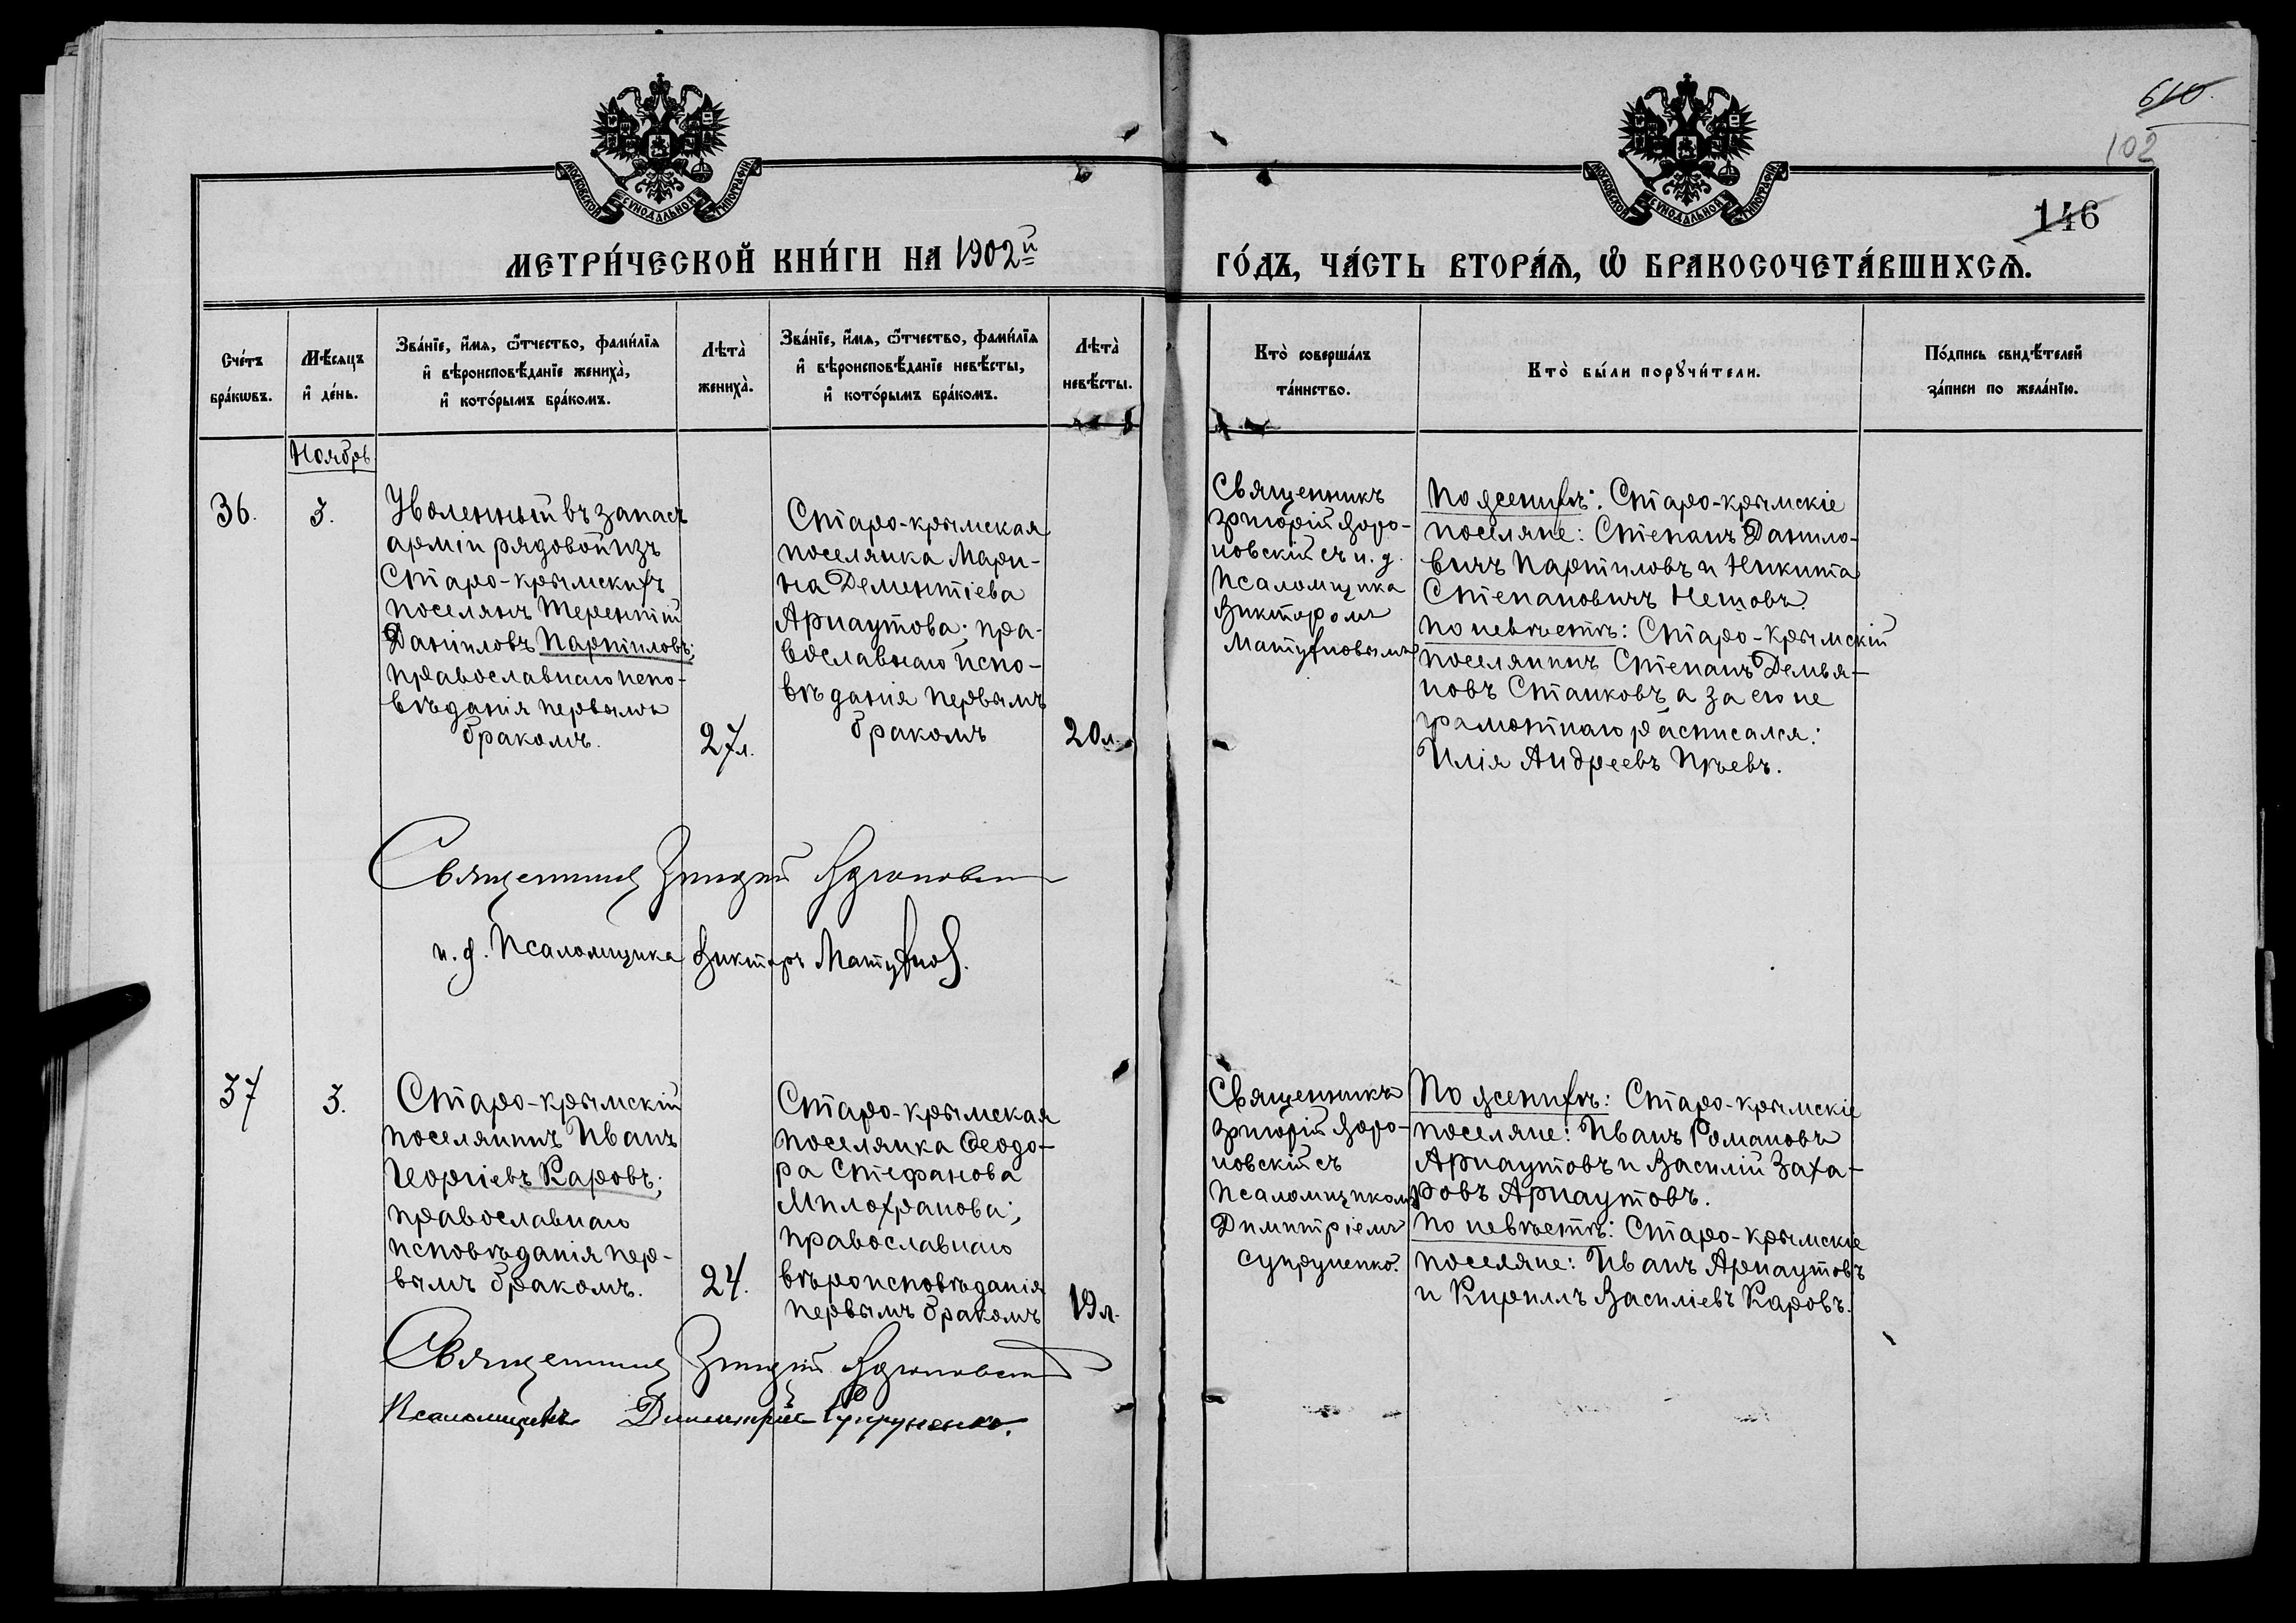 610.
102
146
МОСКОВСКОЙ СѴНОДАЛЬНОЙ ТИПОГРАФІИ
МОСКОВСКОЙ СѴНОДАЛЬНОЙ ТИПОГРАФІИ
МЕТРИ́ЧЕСКОЙ КНИ́ГИ НА 1902й
ГО́ДЪ, ЧА́СТЬ ВТОРА́Ѧ, Ѽ БРАКОСОЧЕТА́ВШИХСѦ.
Сче́тъ
бра́кѡвъ.
Мѣ́сяцъ
и҆ де́нь.
Зва́нїе, и҆́мѧ, ѻ҆́тчество, фами́лїѧ
и҆ вѣроисповѣ́данїе жениха̀,
и҆ кото́рымъ бра́комъ.
Лѣта̀
жениха̀.
Зва́нїе, и҆́мѧ, ѻ҆́тчество, фами́лїѧ
и҆ вѣроисповѣ́данїе невѣ́сты,
и҆ кото́рымъ бра́комъ.
Лѣта̀
невѣ́сты.
Кто̀ соверша́лъ
та́инство.
Кто̀ бы́ли порꙋчи́тели.
По́дпись свидѣ́телей
за́писи по жела́нїю.
Ноябрь
36.
3.
Уволенный въ запасъ
арміи рядовой изъ
Старо-крымскихъ
поселянъ Терентій
Даніиловъ Партиловъ;
православнаго испо-
вѣданія первымъ
бракомъ.
27л.
Старо-крымская
поселянка Мари-
на Дементіева
Арнаутова; пра-
вославнаго испо-
вѣданія первымъ
бракомъ
20л.
Священникъ
Григорій Воро-
новскій съ и. д.
Псаломщика
Викторомъ
Матухновымъ
По женихѣ: Старо-крымскіе
поселяне: Степанъ Данило-
вичъ Партиловъ и Никита
Степановичъ Нешовъ.
по невѣстѣ: Старо-крымскій
поселянинъ Степанъ Демья-
новъ Станковъ, а за его не
грамотнаго расписался:
Илія Андреевъ Пѣевъ.
Священникъ Григорій Вороновскій
и. д. Псаломщика Викторъ Матухнов.
37
3.
Старо-крымскій
поселянинъ Иванъ
Георгіевъ Каровъ;
православнаго
исповѣданія пер-
вымъ бракомъ.
24.
Старо-крымская
поселянка Ѳеодо-
ра Стефанова
Милохранова;
православнаго
вѣроисповѣданія
первымъ бракомъ
19л.
Священникъ
Григорій Воро-
новскій съ
Псаломщикомъ
Димитріемъ
Супруненко.
По женихѣ: Старо-крымскіе
поселяне: Иванъ Романовъ
Арнаутовъ и Василій Заха-
ровъ Арнаутовъ.
по невѣстѣ: Старо-крымскіе
поселяне: Иванъ Арнаутовъ
и Кириллъ Василіевъ Каровъ.
Священникъ Григорій Вороновскій
Псаломщикъ Димитрій Супруненко.